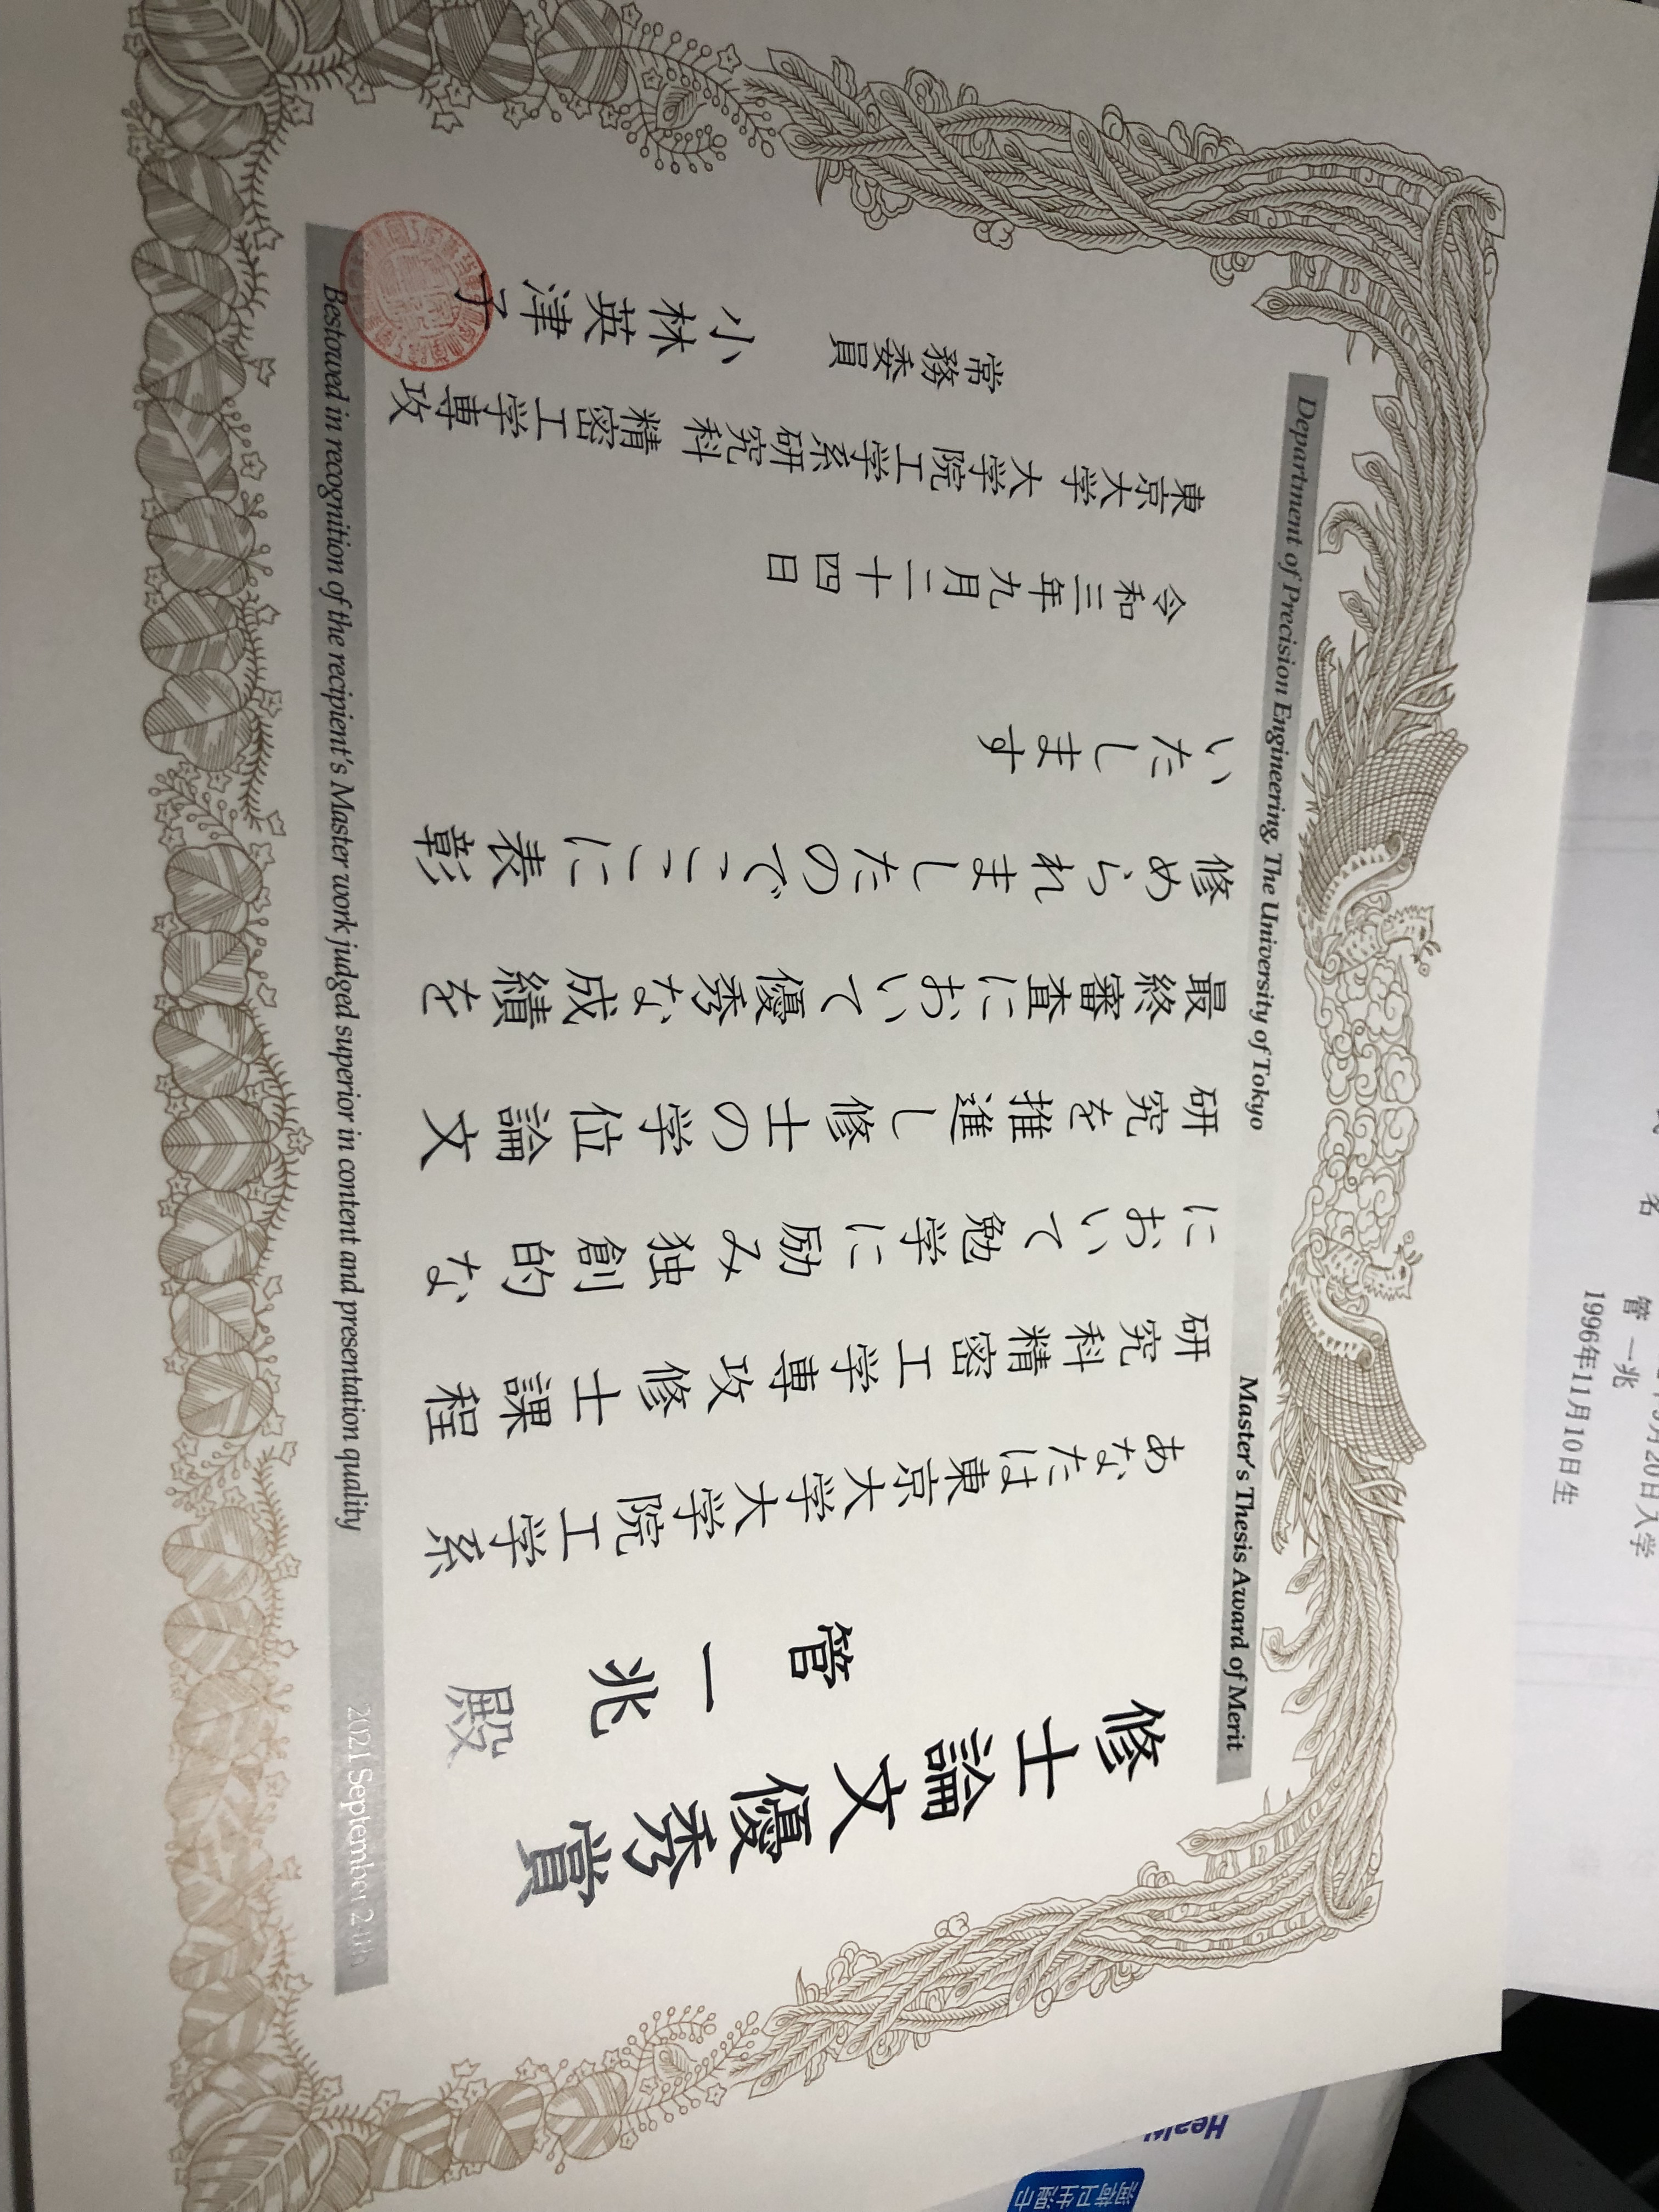 Department of Precision Engineering, The University of Tokyo
Master's Thesis Award of Merit
修士論文優秀賞
管 一兆 殿
あなたは東京大学大学院工学系
研究科精密工学専攻修士課程
において勉学に励み独創的な
研究を推進し修士の学位論文
最終審査において優秀な成績を
修められましたのでここに表彰
いたします
令和三年九月二十四日
東京大学 大学院工学系研究科 精密工学専攻
常務委員 小林英津子
Bestowed in recognition of the recipient's Master work judged superior in content and presentation quality
2021 September 24th
名
管 一兆
月20日入学
1996年11月10日生
润荷卫生湿巾